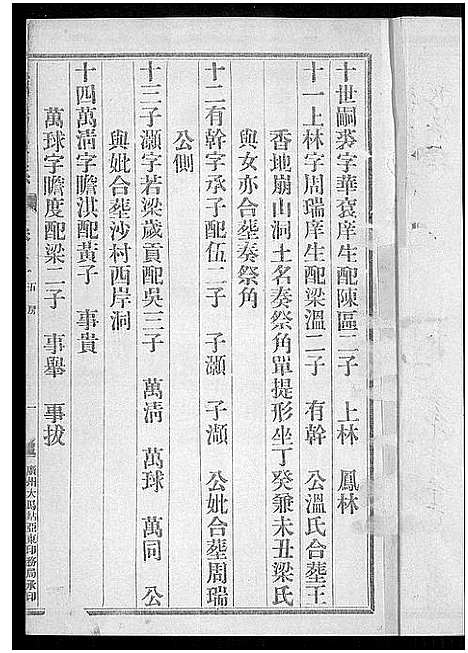 十世嗣裘字華袞庠生配陳區二子　上林　鳳林
十一上林字周瑞庠生配梁溫二子　有幹　公溫氏合塟王
香地崩山洞土名奏祭角單提形坐丁癸兼未丑梁氏
與女亦合塟奏祭角
十二有幹字承子配伍二子　子灝　子灝　公妣合塟周瑞
公側
十三子灝字若梁歲貢配吳三子　萬淸　萬球　萬同　公
與妣合塟沙村西岸洞
十四萬淸字瞻淇配黃子　事貴
萬球字瞻度配梁二子　事舉　事拔
伍房
一
廣州大馬站亞東印務局承印